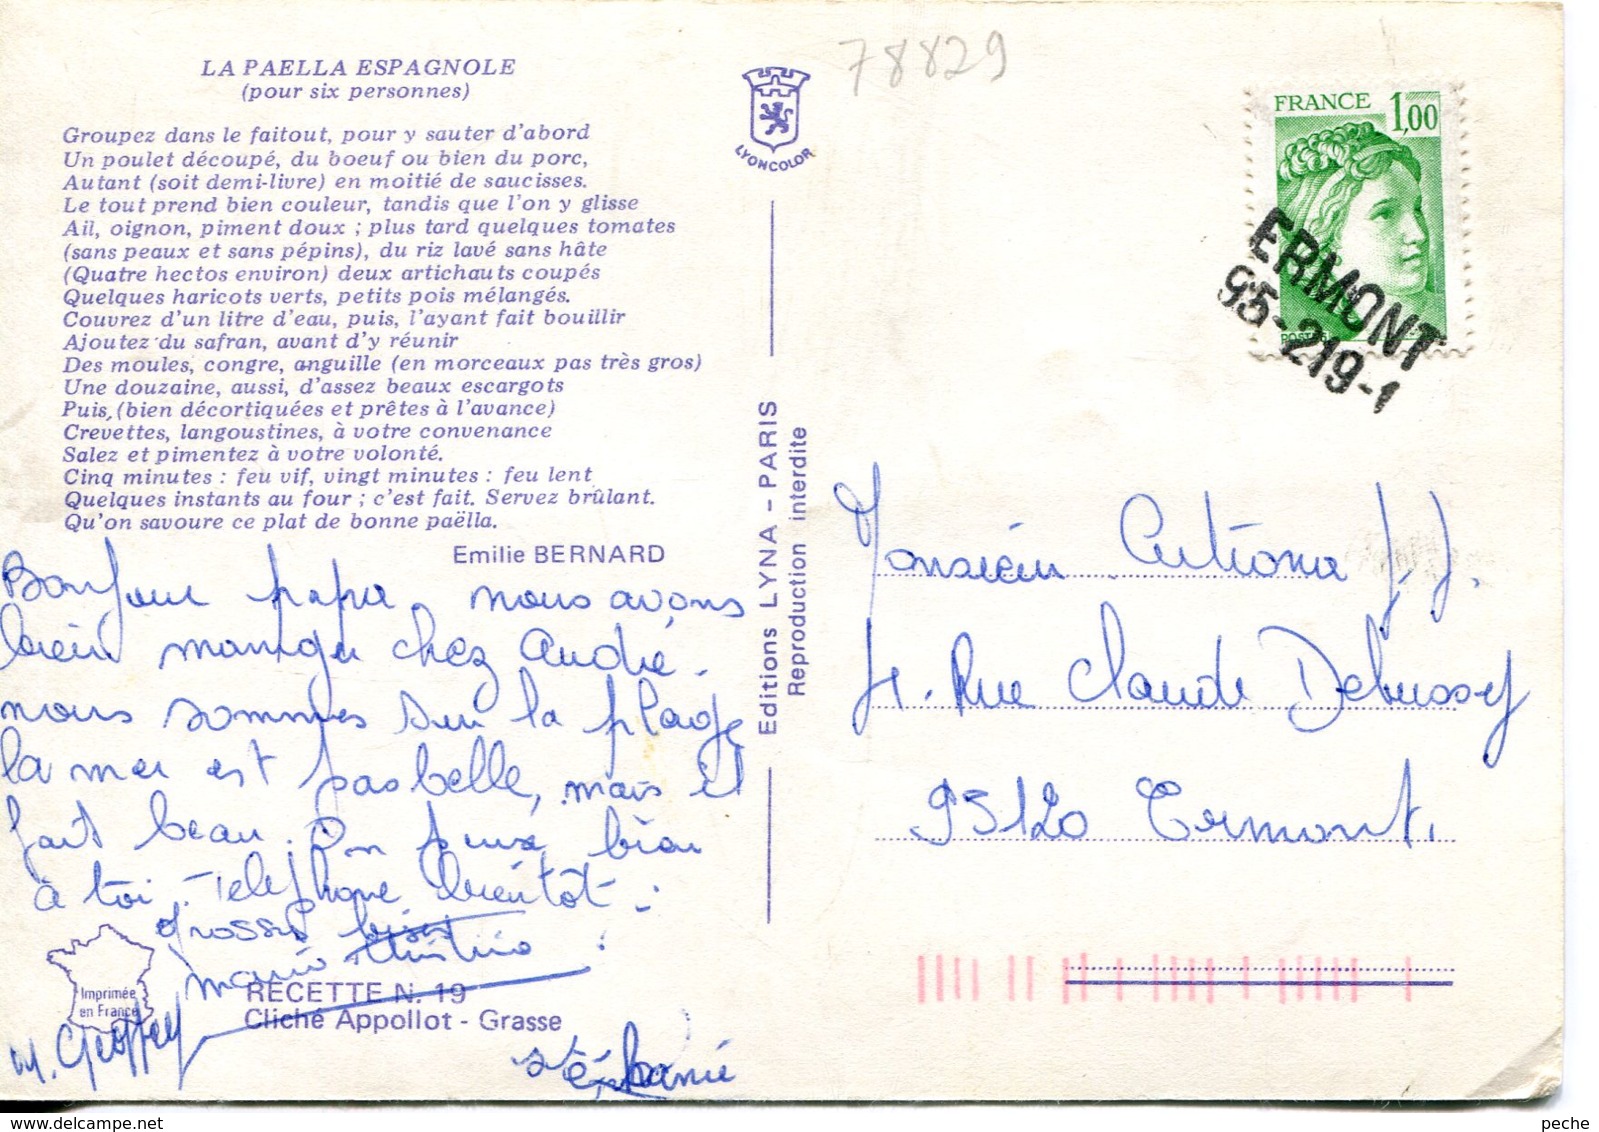 LA PAELLA ESPAGNOLE
(pour six personnes)
Groupez dans le faitout, pour y sauter d'abord
Un poulet découpé, du boeuf ou bien du porc,
Autant (soit demi-livre) en moitié de saucisses.
Le tout prend bien couleur, tandis que l'on y glisse
Ail, oignon, piment doux ; plus tard quelques tomates
(sans peaux et sans pépins), du riz lavé sans hâte
(Quatre hectos environ) deux artichauts coupés
Quelques haricots verts, petits pois mélangés.
Couvrez d'un litre d'eau, puis, l'ayant fait bouillir
Ajoutez du safran, avant d'y réunir
Des moules, congre, anguille (en morceaux pas très gros)
Une douzaine, aussi, d'assez beaux escargots
Puis, (bien décortiquées et prêtes à l'avance)
Crevettes, langoustines, à votre convenance
Salez et pimentez à votre volonté.
Cinq minutes : feu vif, vingt minutes : feu lent
Quelques instants au four ; c'est fait. Servez brûlant.
Qu'on savoure ce plat de bonne paëlla.
Emilie BERNARD
Bonjour papa, nous avons
bien manger chez André.
nous sommes sur la plage
la mer est pas belle, mais il
fait beau. On pense bien
à toi. Téléphone bientôt.
Grosses bises
Marie Christine
M. Geoffrey
Stéphanie
Imprimée
en France
RECETTE N. 19
Cliché Appollot - Grasse
LYONCOLOR
Editions LYNA - PARIS
Reproduction interdite
78829
FRANCE 1,00
POSTES
ERMONT
95-219-1
Monsieur J.J.
4. Rue Claude Debussy
95120 Ermont.
peche